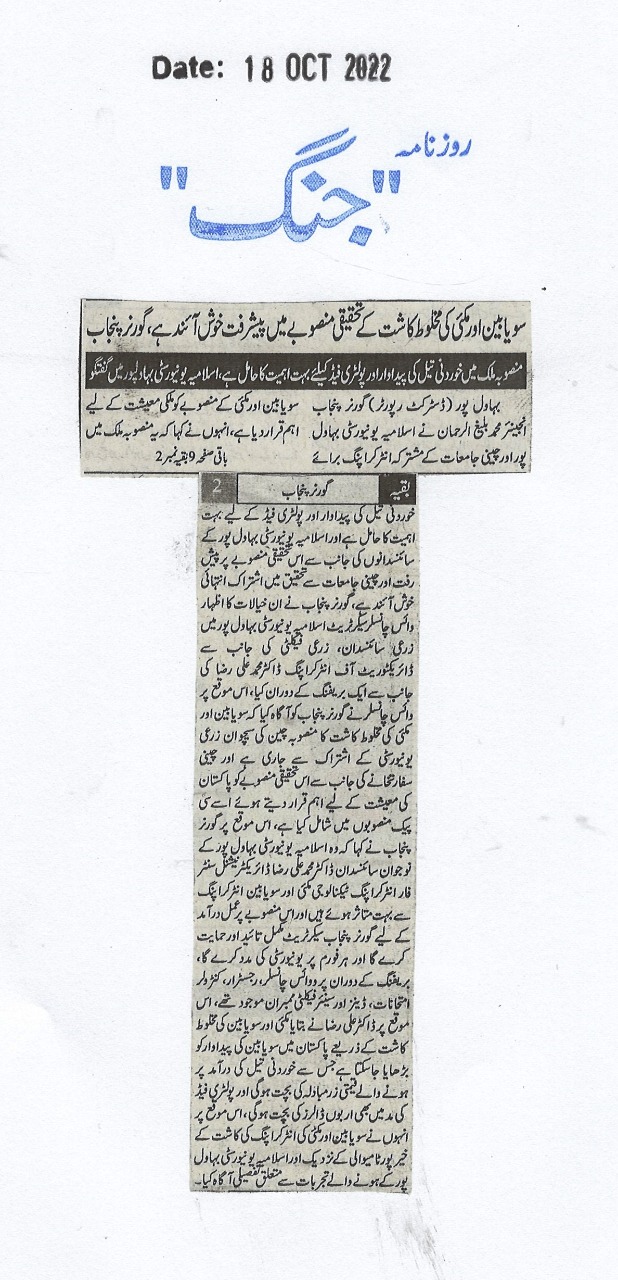 Date: 18 OCT 2022
روزنامہ
"جنگ"
سویابین اور مکئی کی مخلوط کاشت کے تحقیقی منصوبے میں پیشرفت خوش آئند ہے، گورنر پنجاب
منصوبہ ملک میں خوردنی تیل کی پیداوار اور پولٹری فیڈ کیلئے بہت اہمیت کا حامل ہے، اسلامیہ یونیورسٹی بہاولپور میں گفتگو
بہاول پور (ڈسٹرکٹ رپورٹر) گورنر پنجاب
انجینئر محمد بلیغ الرحمان نے اسلامیہ یونیورسٹی بہاول
پور اور چینی جامعات کے مشترکہ انٹرکراپنگ برائے
سویابین اور مکئی کے منصوبے کو ملکی معیشت کے لیے
اہم قرار دیا ہے، انہوں نے کہا کہ یہ منصوبہ ملک میں
باقی صفحہ 9 بقیہ نمبر 2
بقیہ گورنر پنجاب 2
خوردنی تیل کی پیداوار اور پولٹری فیڈ کے لیے بہت
اہمیت کا حامل ہے اور اسلامیہ یونیورسٹی بہاول پور کے
سائنسدانوں کی جانب سے اس تحقیقی منصوبے پر پیش
رفت اور چینی جامعات سے تحقیق میں اشتراک انتہائی
خوش آئند ہے، گورنر پنجاب نے ان خیالات کا اظہار
وائس چانسلر سیکرٹریٹ اسلامیہ یونیورسٹی بہاول پور میں
زرعی سائنسدان، زرعی فیکلٹی کی جانب سے
ڈائریکٹوریٹ آف انٹرکراپنگ ڈاکٹر محمد علی رضا کی
جانب سے ایک بریفنگ کے دوران کیا، اس موقع پر
وائس چانسلر نے گورنر پنجاب کو آگاہ کیا کہ سویابین اور
مکئی کی مخلوط کاشت کا منصوبہ چین کی سیچوان زرعی
یونیورسٹی کے اشتراک سے جاری ہے اور چینی
سفارتخانے کی جانب سے اس تحقیقی منصوبے کو پاکستان
کی معیشت کے لیے اہم قرار دیتے ہوئے اسے سی
پیک منصوبوں میں شامل کیا ہے، اس موقع پر گورنر
پنجاب نے کہا کہ وہ اسلامیہ یونیورسٹی بہاول پور کے
نوجوان سائنسدان ڈاکٹر محمد علی رضا ڈائریکٹر نیشنل سنٹر
فار انٹرکراپنگ ٹیکنالوجی مکئی اور سویابین انٹرکراپنگ
سے بہت متاثر ہوئے ہیں اور اس منصوبے پر عمل درآمد
کے لیے گورنر پنجاب سیکرٹریٹ مکمل تائید اور حمایت
کرے گا اور ہر فورم پر یونیورسٹی کی مدد کرے گا،
بریفنگ کے دوران پرو وائس چانسلر، رجسٹرار، کنٹرولر
امتحانات، ڈینز اور سینئر فیکلٹی ممبران موجود تھے، اس
موقع پر ڈاکٹر علی رضا نے بتایا مکئی اور سویابین کی مخلوط
کاشت کے ذریعے پاکستان میں سویابین کی پیداوار کو
بڑھایا جا سکتا ہے جس سے خوردنی تیل کی درآمد پر
ہونے والے قیمتی زرمبادلہ کی بچت ہوگی اور پولٹری فیڈ
کی مد میں بھی اربوں ڈالرز کی بچت ہوگی، اس موقع پر
انہوں نے سویابین اور مکئی کی انٹرکراپنگ کی کاشت کے
خیرپور ٹامیوالی کے نزدیک اور اسلامیہ یونیورسٹی بہاول
پور کے ہونے والے تجربات سے متعلق تفصیلی آگاہ کیا۔